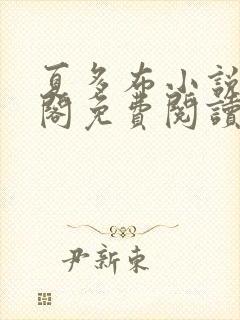 夏多布小說
閣免費閱讀
尹新東